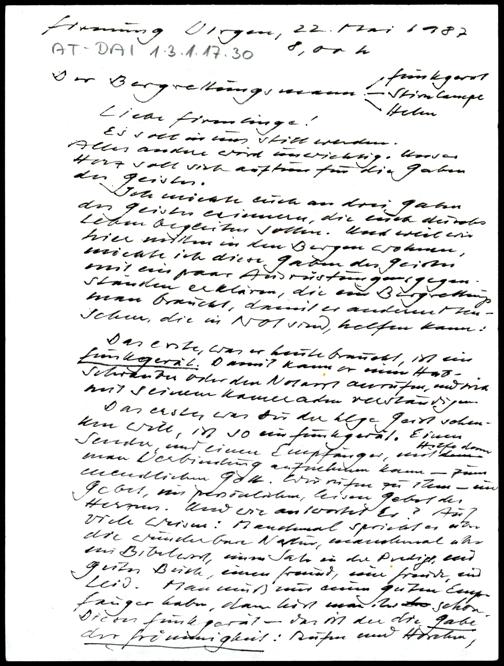 Firmung Virgen, 22. Mai 1987
AT-DAI 1.3.1.17.30
8,00 h
Der Bergrettungsmann — Funkgerät
Stirnlampe
Helm
Liebe Firmlinge!
Es soll in uns still werden.
Alles andere wird unwichtig. Unser
Herz soll sich auftun für die Gaben
des Geistes.
Ich möchte euch an drei Gaben
des Geistes erinnern, die euch durchs
Leben begleiten sollen. Und weil wir
hier mitten in den Bergen wohnen,
möchte ich diese Gaben des Geistes
mit ein paar Ausrüstungsgegen-
ständen erklären, die ein Bergrettungs-
mann braucht, damit er anderen Men-
schen, die in Not sind, helfen kann:
Das erste, was er heute braucht, ist ein
Funkgerät. Damit kann er einen Hub-
schrauber oder den Notarzt anrufen, und sich
mit seinen Kameraden verständigen
Das erste, was dir der Hlge Geist schen-
ken will, ist so ein Funkgerät. Einen
Sender und einen Empfänger, mit Hilfe dem
man Verbindung aufnehmen kann — zum
unendlichen Gott. Wir rufen zu Ihm — im
Gebet, im persönlichen, leisen Gebet des
Herzens. Und wie antwortet Er? Auf
viele Weisen: Manchmal spricht es über
die wunderbare Natur, manchmal über
ein Bibelwort, einen Satz in der Predigt, ein
gutes Buch, einen Freund, eine Freude, ein
Leid. Man muß nur einen guten Emp-
fänger haben, dann hört man Ihn schon.
Dieses Funkgerät — das ist die Gabe
der Frömmigkeit: Rufen und Horchen,